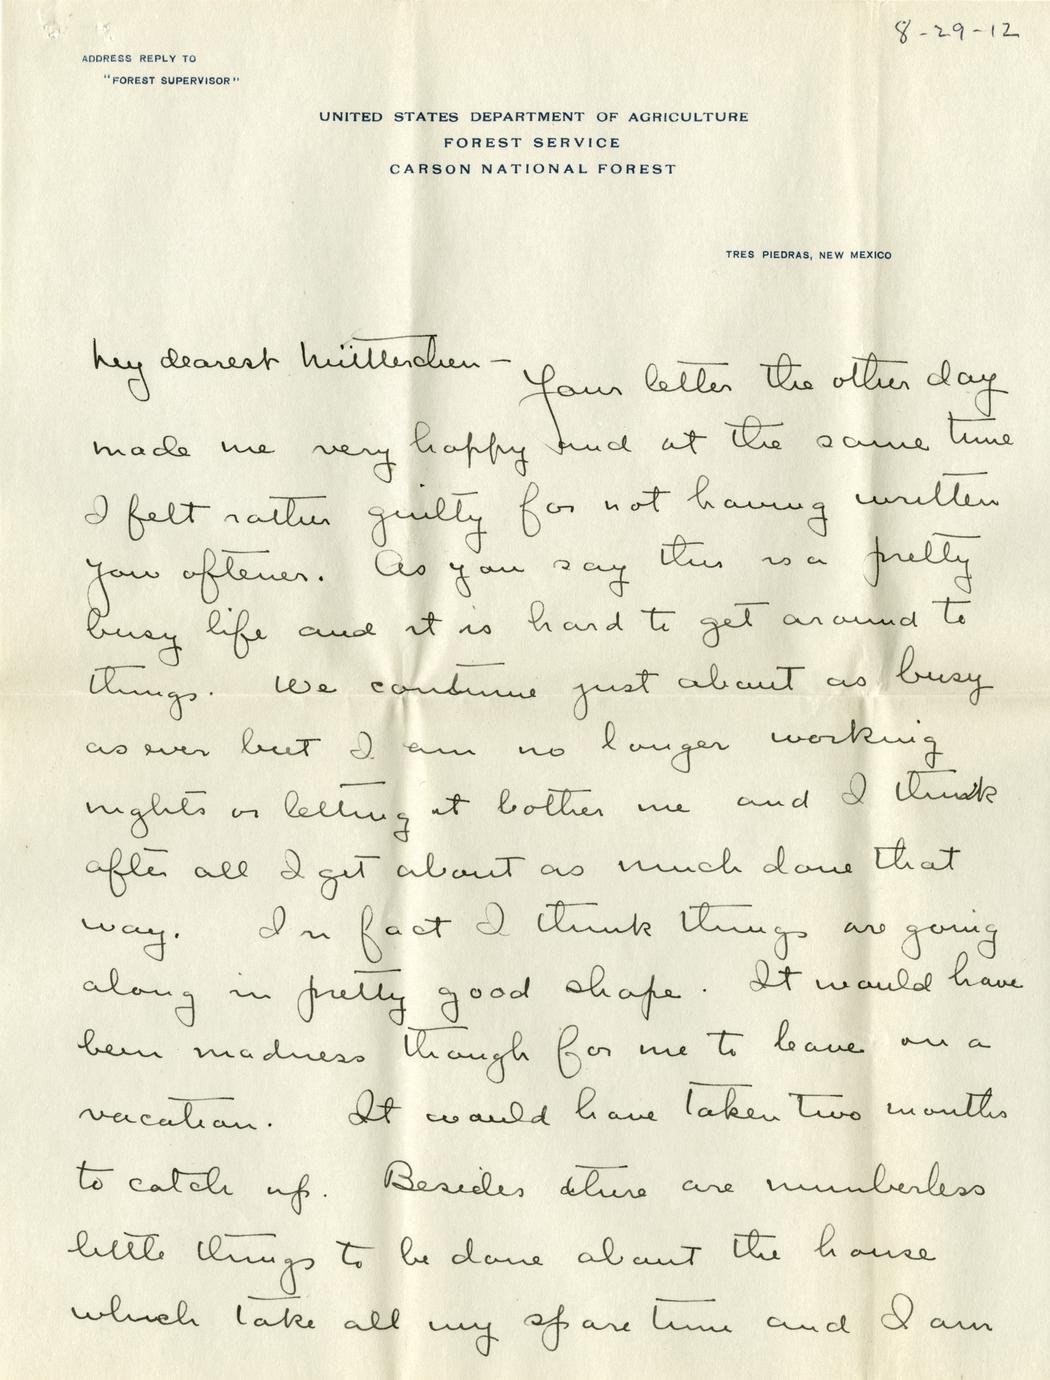 8-29-12
ADDRESS REPLY TO
"FOREST SUPERVISOR"
UNITED STATES DEPARTMENT OF AGRICULTURE
FOREST SERVICE
CARSON NATIONAL FOREST
TRES PIEDRAS, NEW MEXICO
My dearest Mütterchen —
Your letter the other day
made me very happy and at the same time
I felt rather guilty for not having written
you oftener. As you say this is a pretty
busy life and it is hard to get around to
things. We continue just about as busy
as ever but I am no longer working
nights or letting it bother me and I think
after all I get about as much done that
way. In fact I think things are going
along in pretty good shape. It would have
been madness though for me to leave on a
vacation. It would have taken two months
to catch up. Besides there are numberless
little things to be done about the house
which take all my spare time and I am